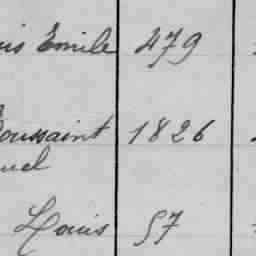 uis Emile 479
Toussaint 1826
uel
Louis 57